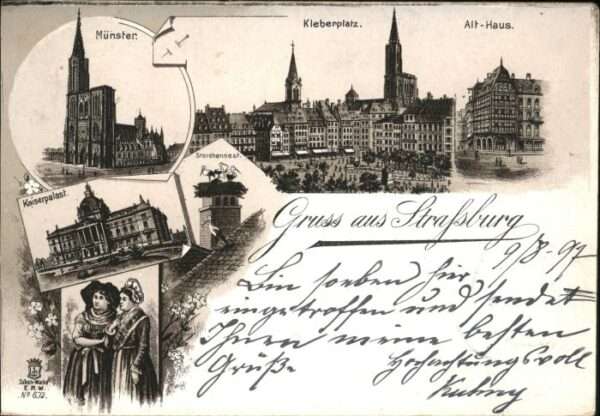 Münster.
Kleberplatz.
Alt-Haus.
Storchennest.
Kaiserpalast.
Gruss aus Straßburg
9/8-97
Bin soeben hier
eingetroffen und sendet
Ihnen meine besten
Grüße
Hochachtungsvoll
E.R.W.
No 632.